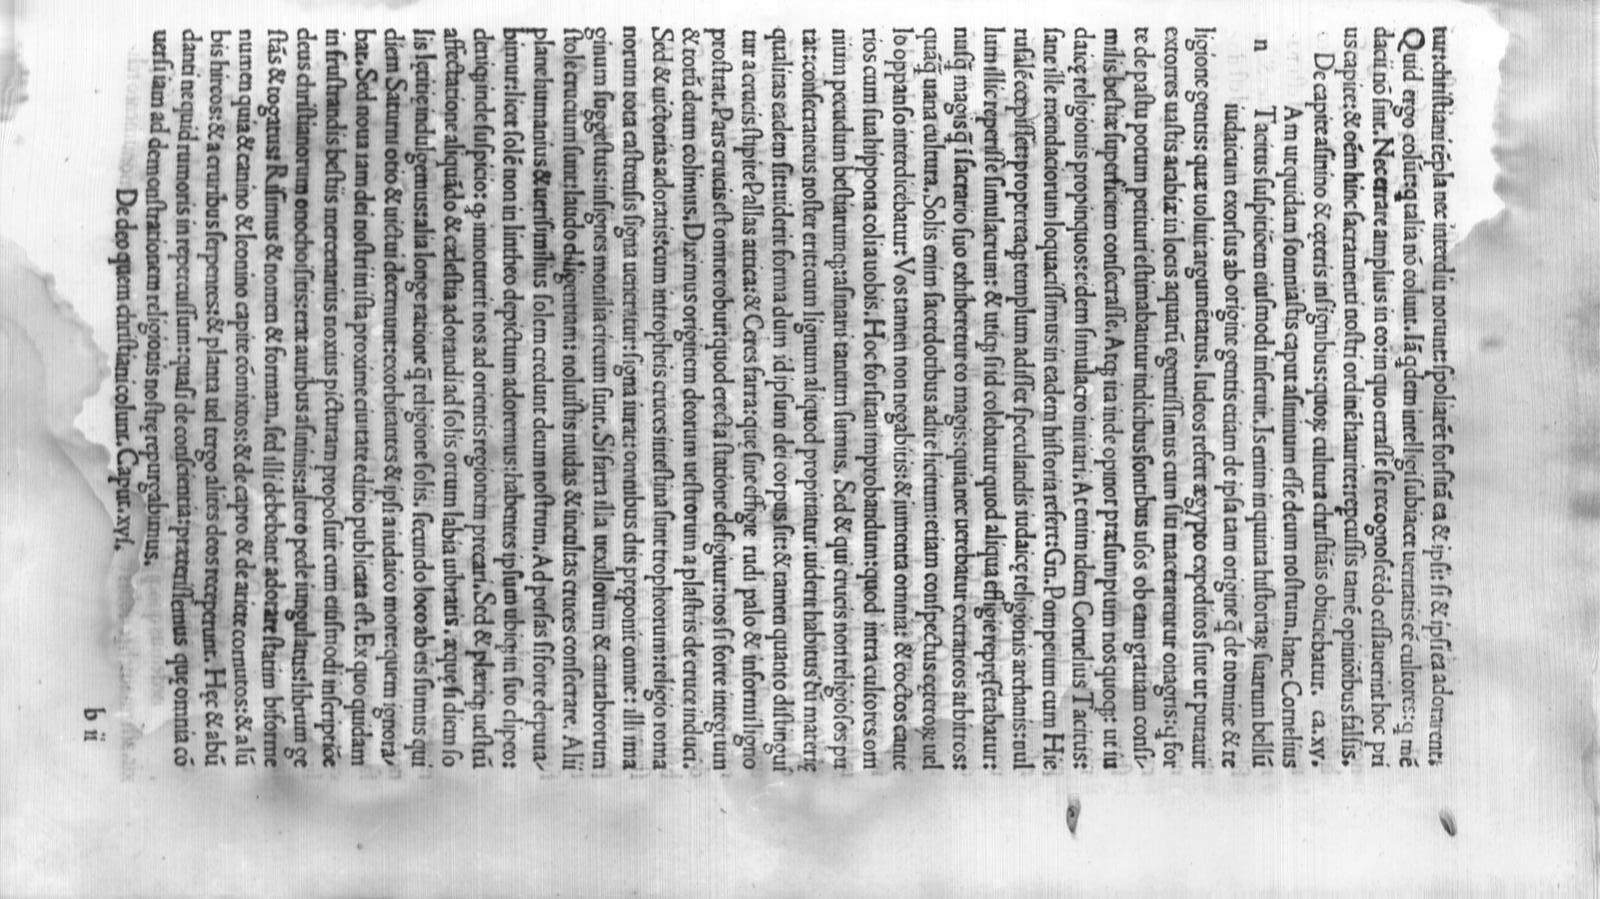 tur: christiani tẽpla nec ĩterdiu norunt: spoliarẽt forsitã ea & ipsi: si & ipsi ea adorarent:
Quid ergo colũt: q̃ talia nõ colunt. Iã q̃dem intelligi subiacet ueritatis eẽ cultores: q̃ mẽ
dacii nõ sint. Nec errare amplius in eo: in quo errasse se recognoscẽdo cessauerint hoc pri
us capite: & oẽm hinc sacramenti nostri ordinẽ haurite: repcussis tamẽ opiniõibus falsis.
De capite asinino & cęteris insignibus: quoꝝ cultura christiãis obiiciebatur. ca. xv.
n Am ut quidam somniastis caput asininum esse deum nostrum. hanc Cornelius
Tacitus suspitiõem eiusmodi inseruit. Is enim in quinta historiaꝝ suarum bellũ
iudaicum exorsus ab origine gentis etiam de ipsa tam origine q̃ de nomine & re
ligione gentis: quæ uoluit argumẽtatus. Iudeos refert ægypto expeditos siue ut putauit
extorres uastis arabiæ in locis aquarũ egentissimus cum siti macerarentur onagris: q̃ for
te de pastu potum petituri ęstimabantur indicibus fontibus usos ob eam gratiam consi/
milis bestiæ superficiem consecrasse. Atq; ita inde opinor præsumptum nos quoq;: ut iu
daicę religionis propinquos: eidem simulacro initiari. At enim idem Cornelius Tacitus:
sane ille mendaciorum loquacissimus in eadem historia refert: Gn. Pompeium cum Hie
rusalẽ cœpisset: propterea q; templum adisset speculandis iudaicę religionis archanis: nul
lum illic reperisse simulacrum: & utiq; si id colebatur quod aliqua effigie repręsẽtabatur:
nusq̃ magis q̃ ĩ sacrario suo exhiberetur eo magis: quia nec uerebatur extraneos arbitros:
quãq̃ uana cultura. Solis enim sacerdotibus adire licitum: etiam conspectus cęteroꝝ uel
lo oppanso interdicebatur: Vos tamen non negabitis: & iumenta omnia: & coctos cante
rios cum sua hippona coli a uobis. Hoc forsitan improbandum: quod intra cultores om
nium pecudum bestiarumq;: asinarii tantum sumus. Sed & qui crucis nos religiosos pu
tat: consecraneus noster erit: cum lignum aliquod propitiatur: uiderit habitus: cũ materię
qualitas eadem sit: uiderit forma dum id ipsum dei corpus sit: & tamen quanto distingui
tur a crucis stipite Pallas attica: & Ceres farra: quę sine effigie rudi palo & informi ligno
prostrat. Pars crucis est omne robur: quod erecta statione defigitur: nos si forte integrum
& totũ deum colimus. Diximus originem deorum uestrorum a plastis de cruce induci.
Sed & uictorias adoratis: cum in tropheis cruces intestina sunt tropheorum: religio roma
norum tota castrensis signa ueneratur: signa iurat: omnibus diis preponit omnes illi ima
ginum suggestus: insignes monilia circum sunt. Sifarra illa uexillorum & cantabrorum
stolę crucium sunt: laudo diligentiam: noluistis nudas & incultas cruces consecrare. Alii
plane humanius & uerisimilius solem credunt deum nostrum. Ad persas si forte deputa/
bimur: licet solẽ non in lintheo depictum adoremus: habentes ipsum ubiq; in suo clipeo:
deniq; inde suspicio: q; innotuerit nos ad orientis regionem precari. Sed & pleriq; uestrũ
affectatione aliquãdo & cælestia adorandi ad solis ortum labia uibratis. æque si diem so
lis lętitię indulgemus: alia longe ratione q̃ religione solis. secundo loco ab eis sumus qui
diem Saturni otio & uictui decernunt: exorbitantes & ipsi a iudaico more: quem ignora/
bat. Sed noua iam dei nostri in ista proxime ciuitate editio publicata est. Ex quo quidam
in frustrandis bestiis mercenarius noxius picturam proposuit cum eiusmodi inscriptiõe
deus christianorum onochoisitis: erat auribus asininis: altero pede iungulatus: librum ge
stãs & togatus: Risimus & nomen & formam. sed illi debebant adorare statim biforme
numen quia & canino & leonino capite cõmixtos: & de capro & de ariete cornutos: & a lũ
bis hircos: & a cruribus serpentes: & planta uel tergo alites deos receperunt. Hęc & abũ
danti ne quid rumoris in repercussum: quasi de consciẽtia: præterissemus quę omnia cõ
uersi iam ad demonstrationem religionis nostrę repurgabimus.
De deo quem christiani colunt. Caput. xvi.
b ii